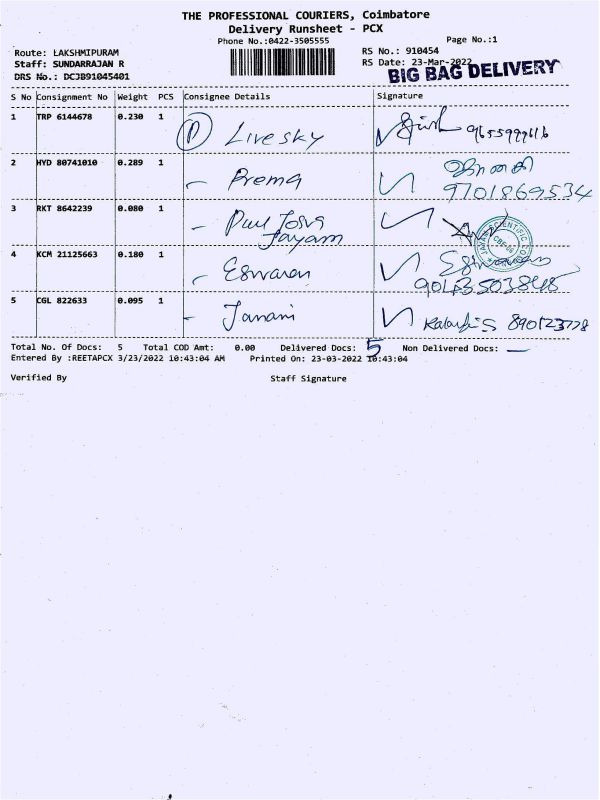 THE PROFESSIONAL COURIERS, Coimbatore
Delivery Runsheet - PCX
Phone No.:0422-3505555
Page No.:1
Route: LAKSHMIPURAM
RS No.: 910454
Staff: SUNDARRAJAN R
RS Date: 23-Mar-2022
DRS No.: DCJB91045401
BIG BAG DELIVERY
S No Consignment No Weight PCS Consignee Details Signature
1 TRP 6144678 0.230 1 Livesky
2 HYD 80741010 0.289 1 Prema 9701869534
3 RKT 8642239 0.080 1
Jayam
4 KCM 21125663 0.180 1 Eswaran
5 CGL 822633 0.095 1 Janani
Total No. Of Docs: 5 Total COD Amt: 0.00 Delivered Docs: 5 Non Delivered Docs: —
Entered By :REETAPCX 3/23/2022 10:43:04 AM Printed On: 23-03-2022 10:43:04
Verified By Staff Signature